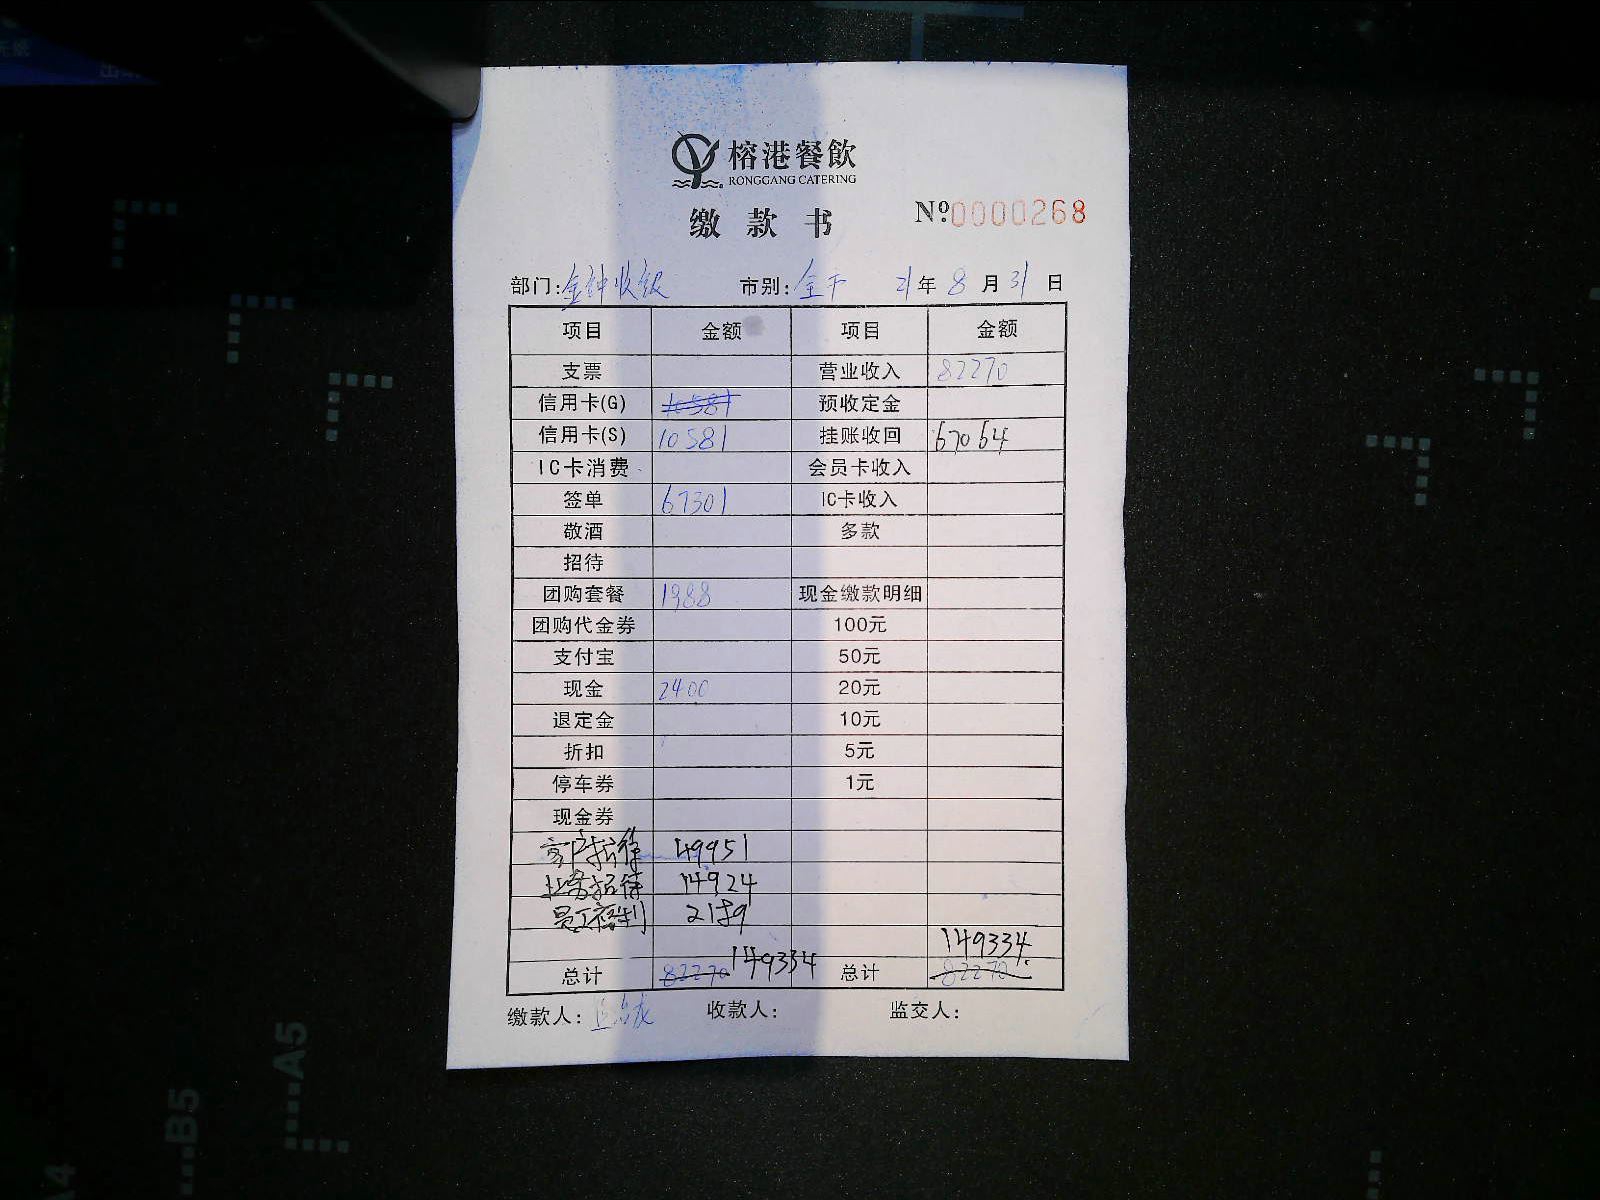 榕港餐飲
RONGGANG CATERING
缴款书 №:0000268
部门:金钟收银 市别: 21年8月31日
项目 金额 项目 金额
支票 营业收入 82270
信用卡(G) 10581 预收定金
信用卡(S) 10581 挂账收回 67064
IC卡消费 会员卡收入
签单 67301 IC卡收入
敬酒 多款
招待
团购套餐 1988 现金缴款明细
团购代金券 100元
支付宝 50元
现金 2400 20元
退定金 10元
折扣 5元
停车券 1元
现金券
客户招待 49951
业务招待 14924
员工福利 2189
149334
总计 82270 149334 总计 82270
缴款人: 收款人: 监交人:
A5
B5
A4